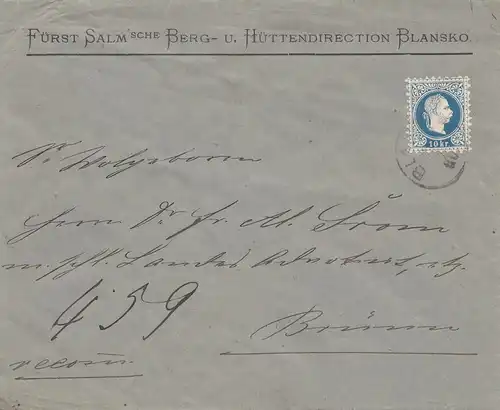 FÜRST SALM'SCHE BERG- U. HÜTTENDIRECTION BLANSKO.
10 kr
Sr Wolgeborn
Herrn Dr. Fr. Al. Šrom
m. schl. Landes Advokat, etz.
459
Brünn
recom̄.